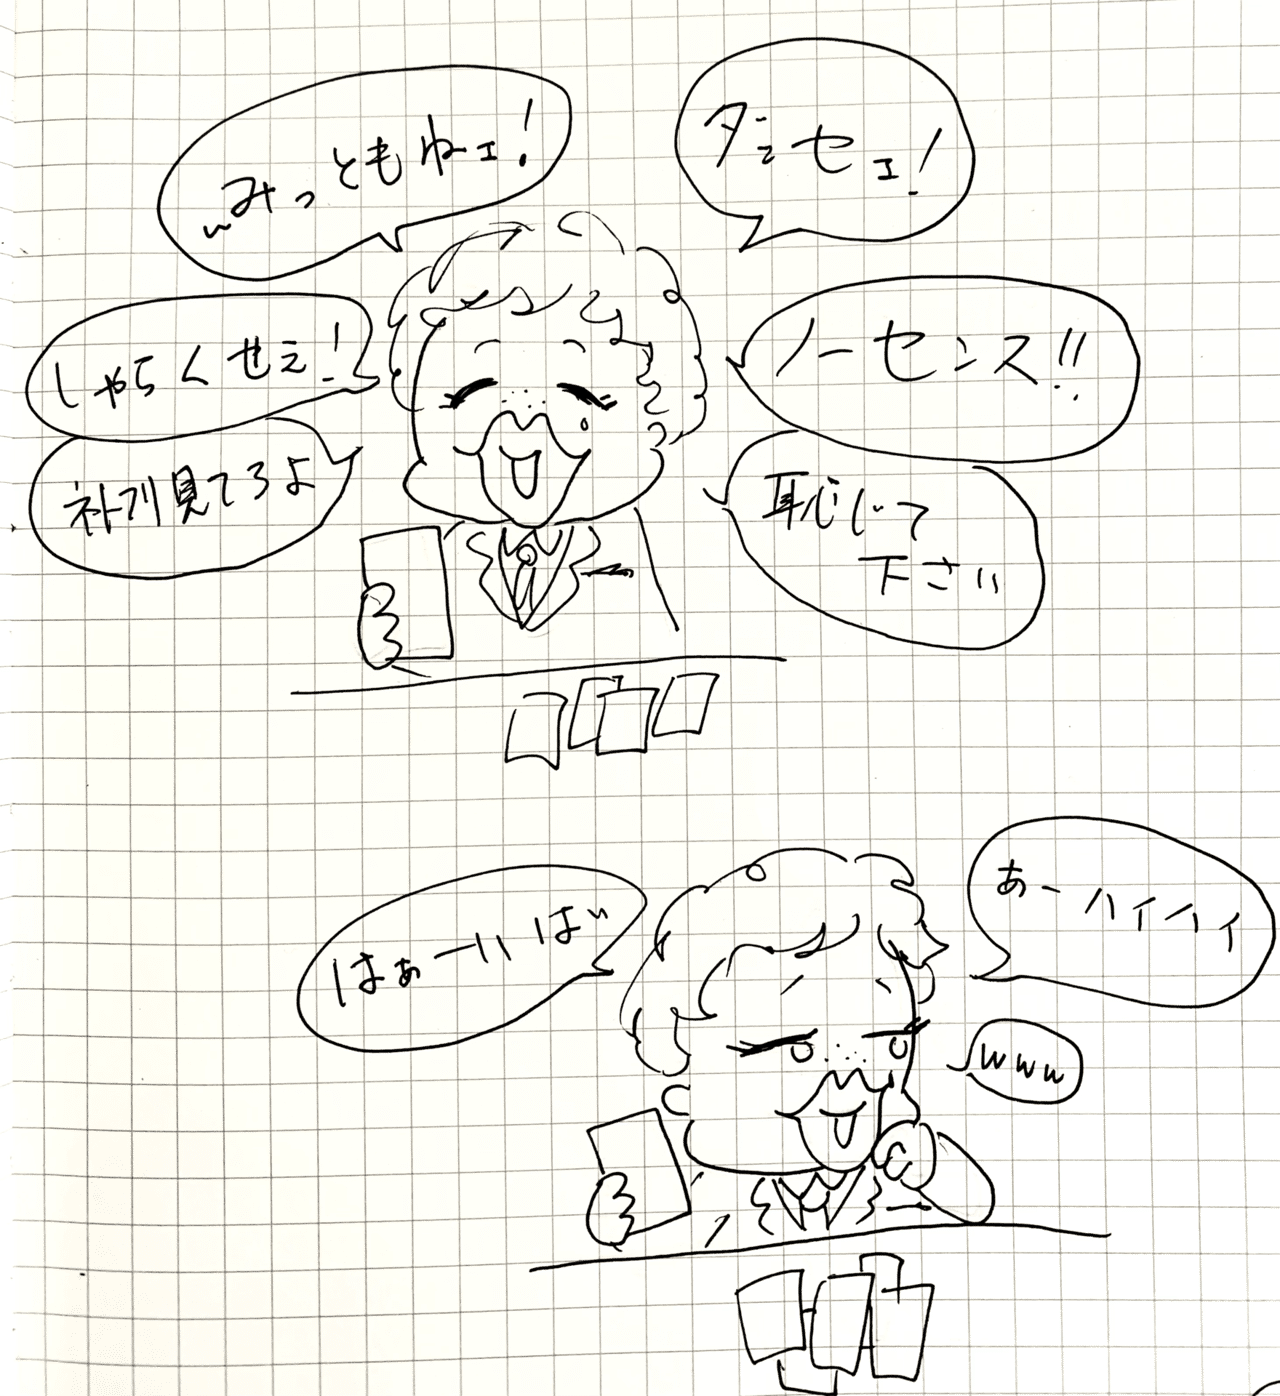 みっともねェ!
ダセェ!
しゃらくせぇ!
ノーセンス!!
見てろよ
恥じて
下さい
はぁーいはい
あーハイハイ
www